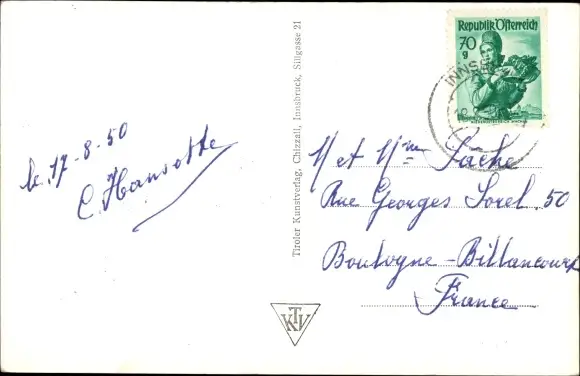 le 17-8-50
C. Hansotte
Tiroler Kunstverlag, Chizzali, Innsbruck, Sillgasse 21
TKV
Republik Österreich
70
g
INNS
M et Mme Sache
Rue Georges Sorel. 50
Boulogne-Billancourt
France